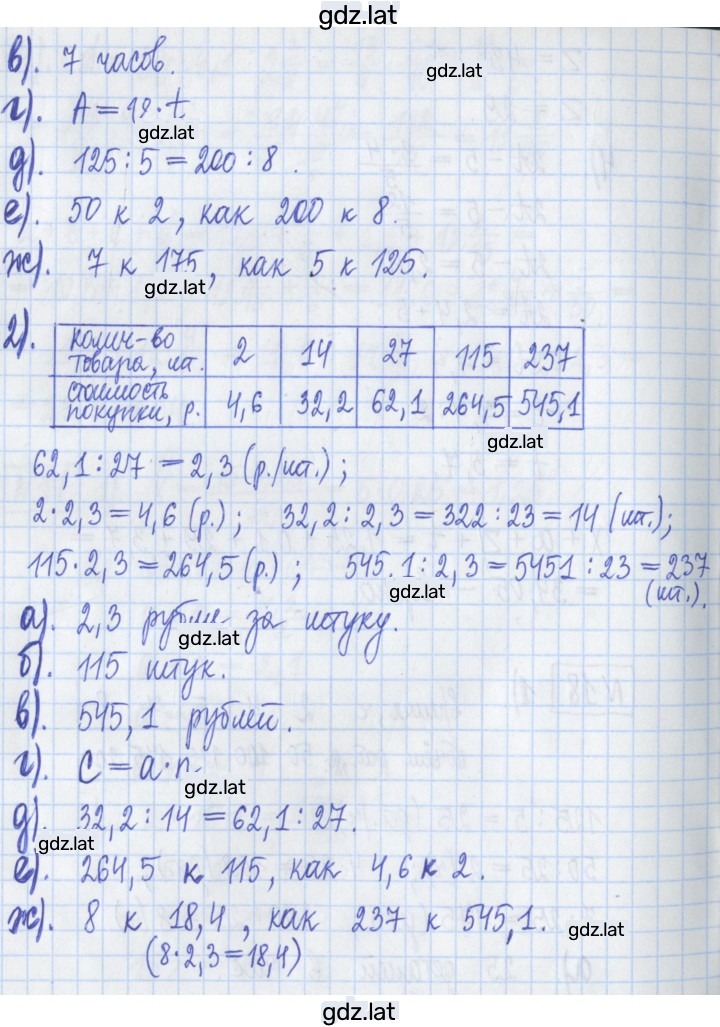 gdz.lat
в). 7 часов.
gdz.lat
г). A = 19·t
gdz.lat
д). 125 : 5 = 200 : 8.
е). 50 к 2, как 200 к 8.
ж). 7 к 175, как 5 к 125.
gdz.lat
2). колич-во товара, шт. 2 14 27 115 237
стоимость покупки, р. 4,6 32,2 62,1 264,5 545,1
gdz.lat
62,1 : 27 = 2,3 (р./шт.);
2·2,3 = 4,6 (р.); 32,2 : 2,3 = 322 : 23 = 14 (шт.);
115·2,3 = 264,5 (р.); 545.1 : 2,3 = 5451 : 23 = 237
(шт.).
gdz.lat
а). 2,3 за штуку.
gdz.lat
б). 115 штук.
в). 545,1 рублей.
г). C = a·n
gdz.lat
д). 32,2 : 14 = 62,1 : 27.
gdz.lat
е). 264,5 к 115, как 4,6 к 2.
ж). 8 к 18,4, как 237 к 545,1.
gdz.lat
(8·2,3 = 18,4)
gdz.lat